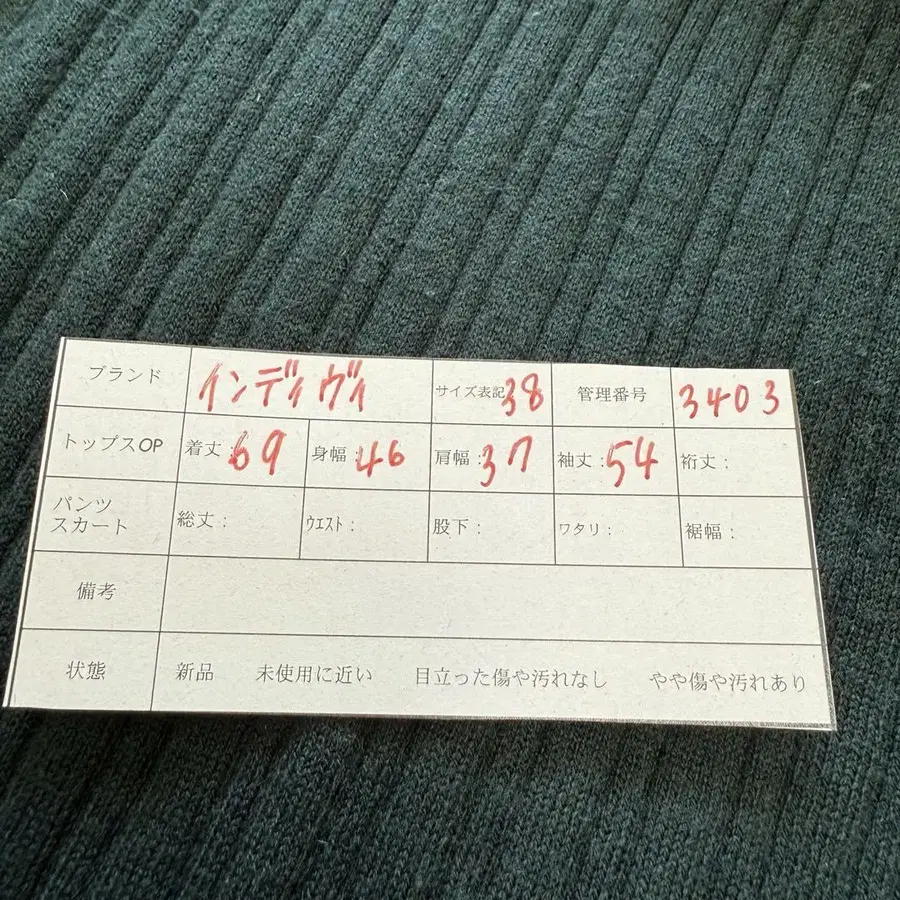 ブランド インディヴィ サイズ表記 38 管理番号 3403
トップスOP 着丈:69 身幅:46 肩幅:37 袖丈:54 裄丈:
パンツ
スカート 総丈: ウエスト: 股下: ワタリ: 裾幅:
備考
状態 新品 未使用に近い 目立った傷や汚れなし やや傷や汚れあり